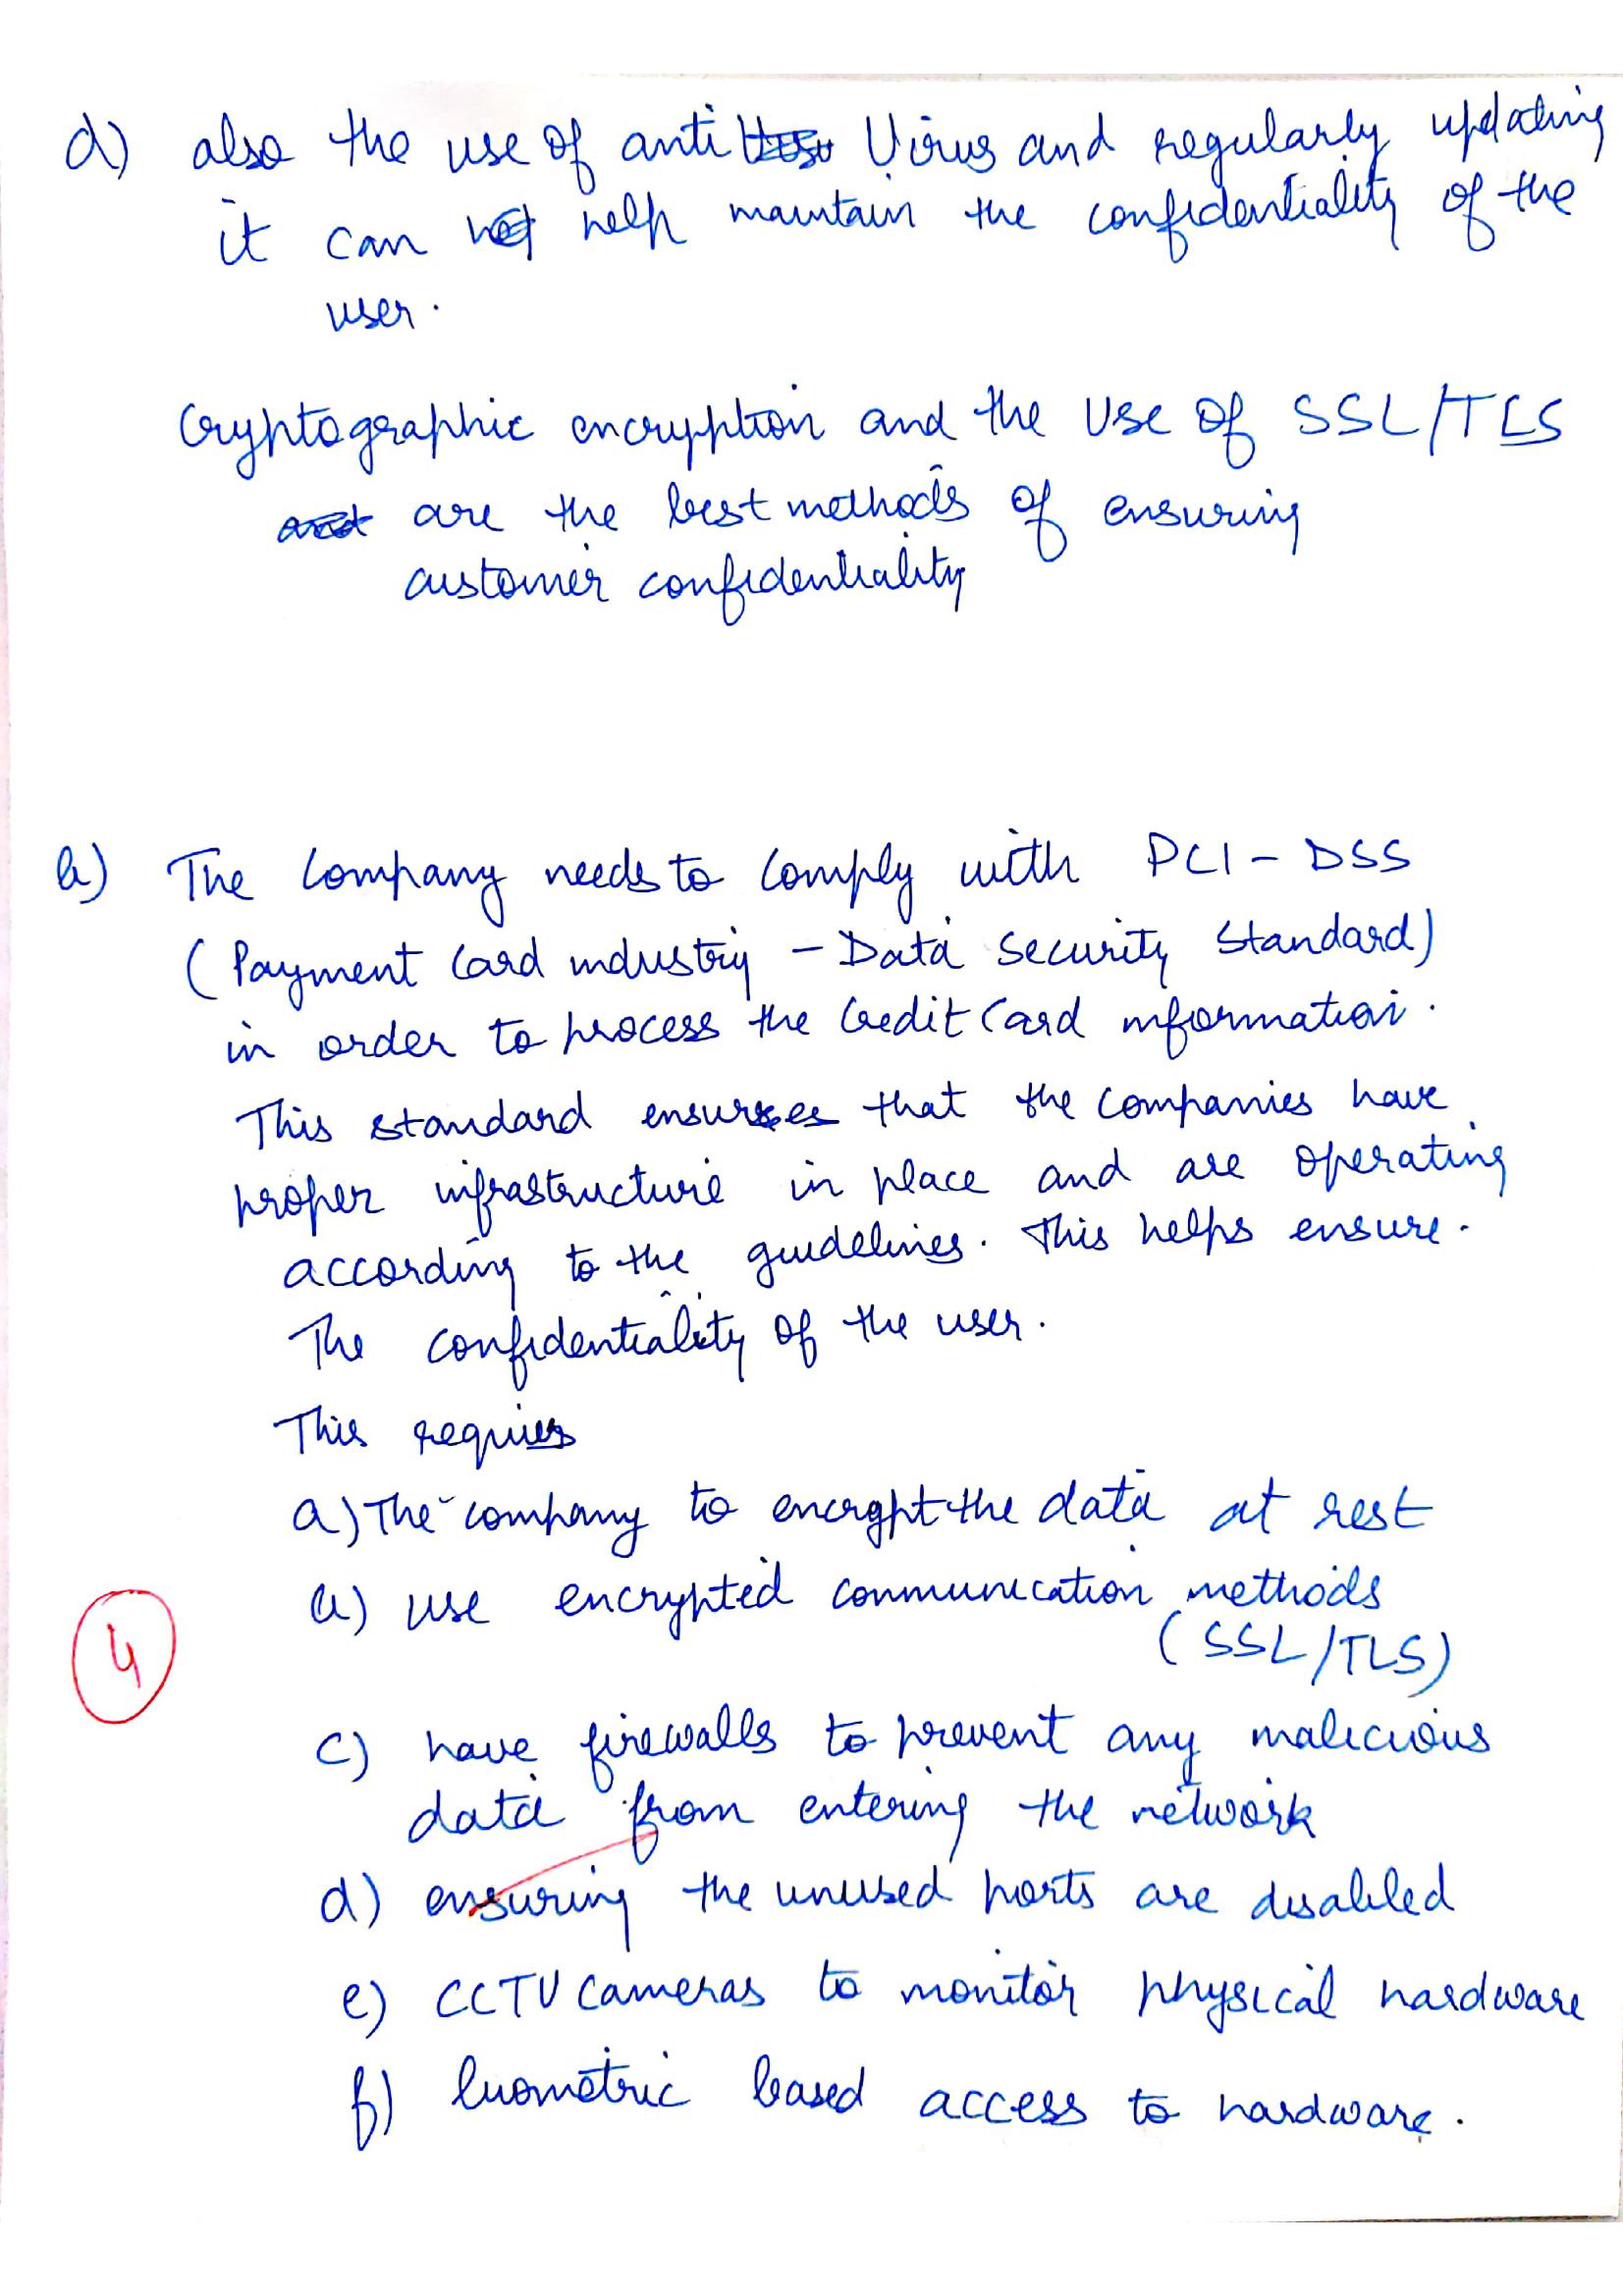 d) also the use of anti Virus and regularly updating
it can help maintain the confidentiality of the
user.
Cryptographic encryption and the use of SSL/TLS
are the best methods of ensuring
customer confidentiality
b) The Company needs to Comply with PCI-DSS
(Payment Card industry - Data Security Standard)
in order to process the Credit Card information.
This standard ensures that the companies have
proper infrastructure in place and are operating
according to the guidelines. This helps ensure.
The confidentiality of the user.
This requires
a) The company to encrypt the data at rest
b) use encrypted communication methods
(SSL/TLS)
4
c) have firewalls to prevent any malicious
data from entering the network
d) ensuring the unused ports are disabled
e) CCTV cameras to monitor physical hardware
f) biometric based access to hardware.